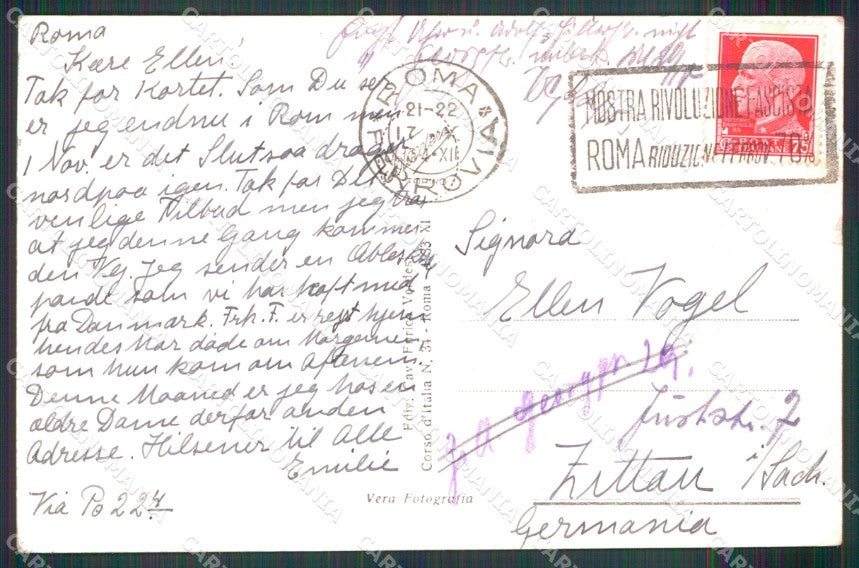 Roma
Kære Ellen,
Tak for Kortet. Som Du ser
er jeg endnu i Rom men
1 Nov er det Slut saa drager
nordpaa igen. Tak for Dit
venlige Tilbud men jeg tror
at jeg denne Gang kommer
den Vej. Jeg sender en Æbleskive
pande som vi har købt med
fra Danmark. Frk. F. er rejst hjem
hendes Kar døde om Morgenen
som hun kom om Aftenen.
Denne Maaned er jeg hos en
ældre Dame derfor anden
Adresse. Hilsener til Alle
Emilie
Via Po 22
ROMA
21-22
17
XII
FERROVIA
MOSTRA RIVOLUZIONE FASCISTA
ROMA RIDUZIONE FERROV. 70%
Signora
Ellen Vogel
Zittau i/Sach.
Germania
Corso d'Italia N. 34 - Roma
Vera Fotografia
CARTOLINOMANIA